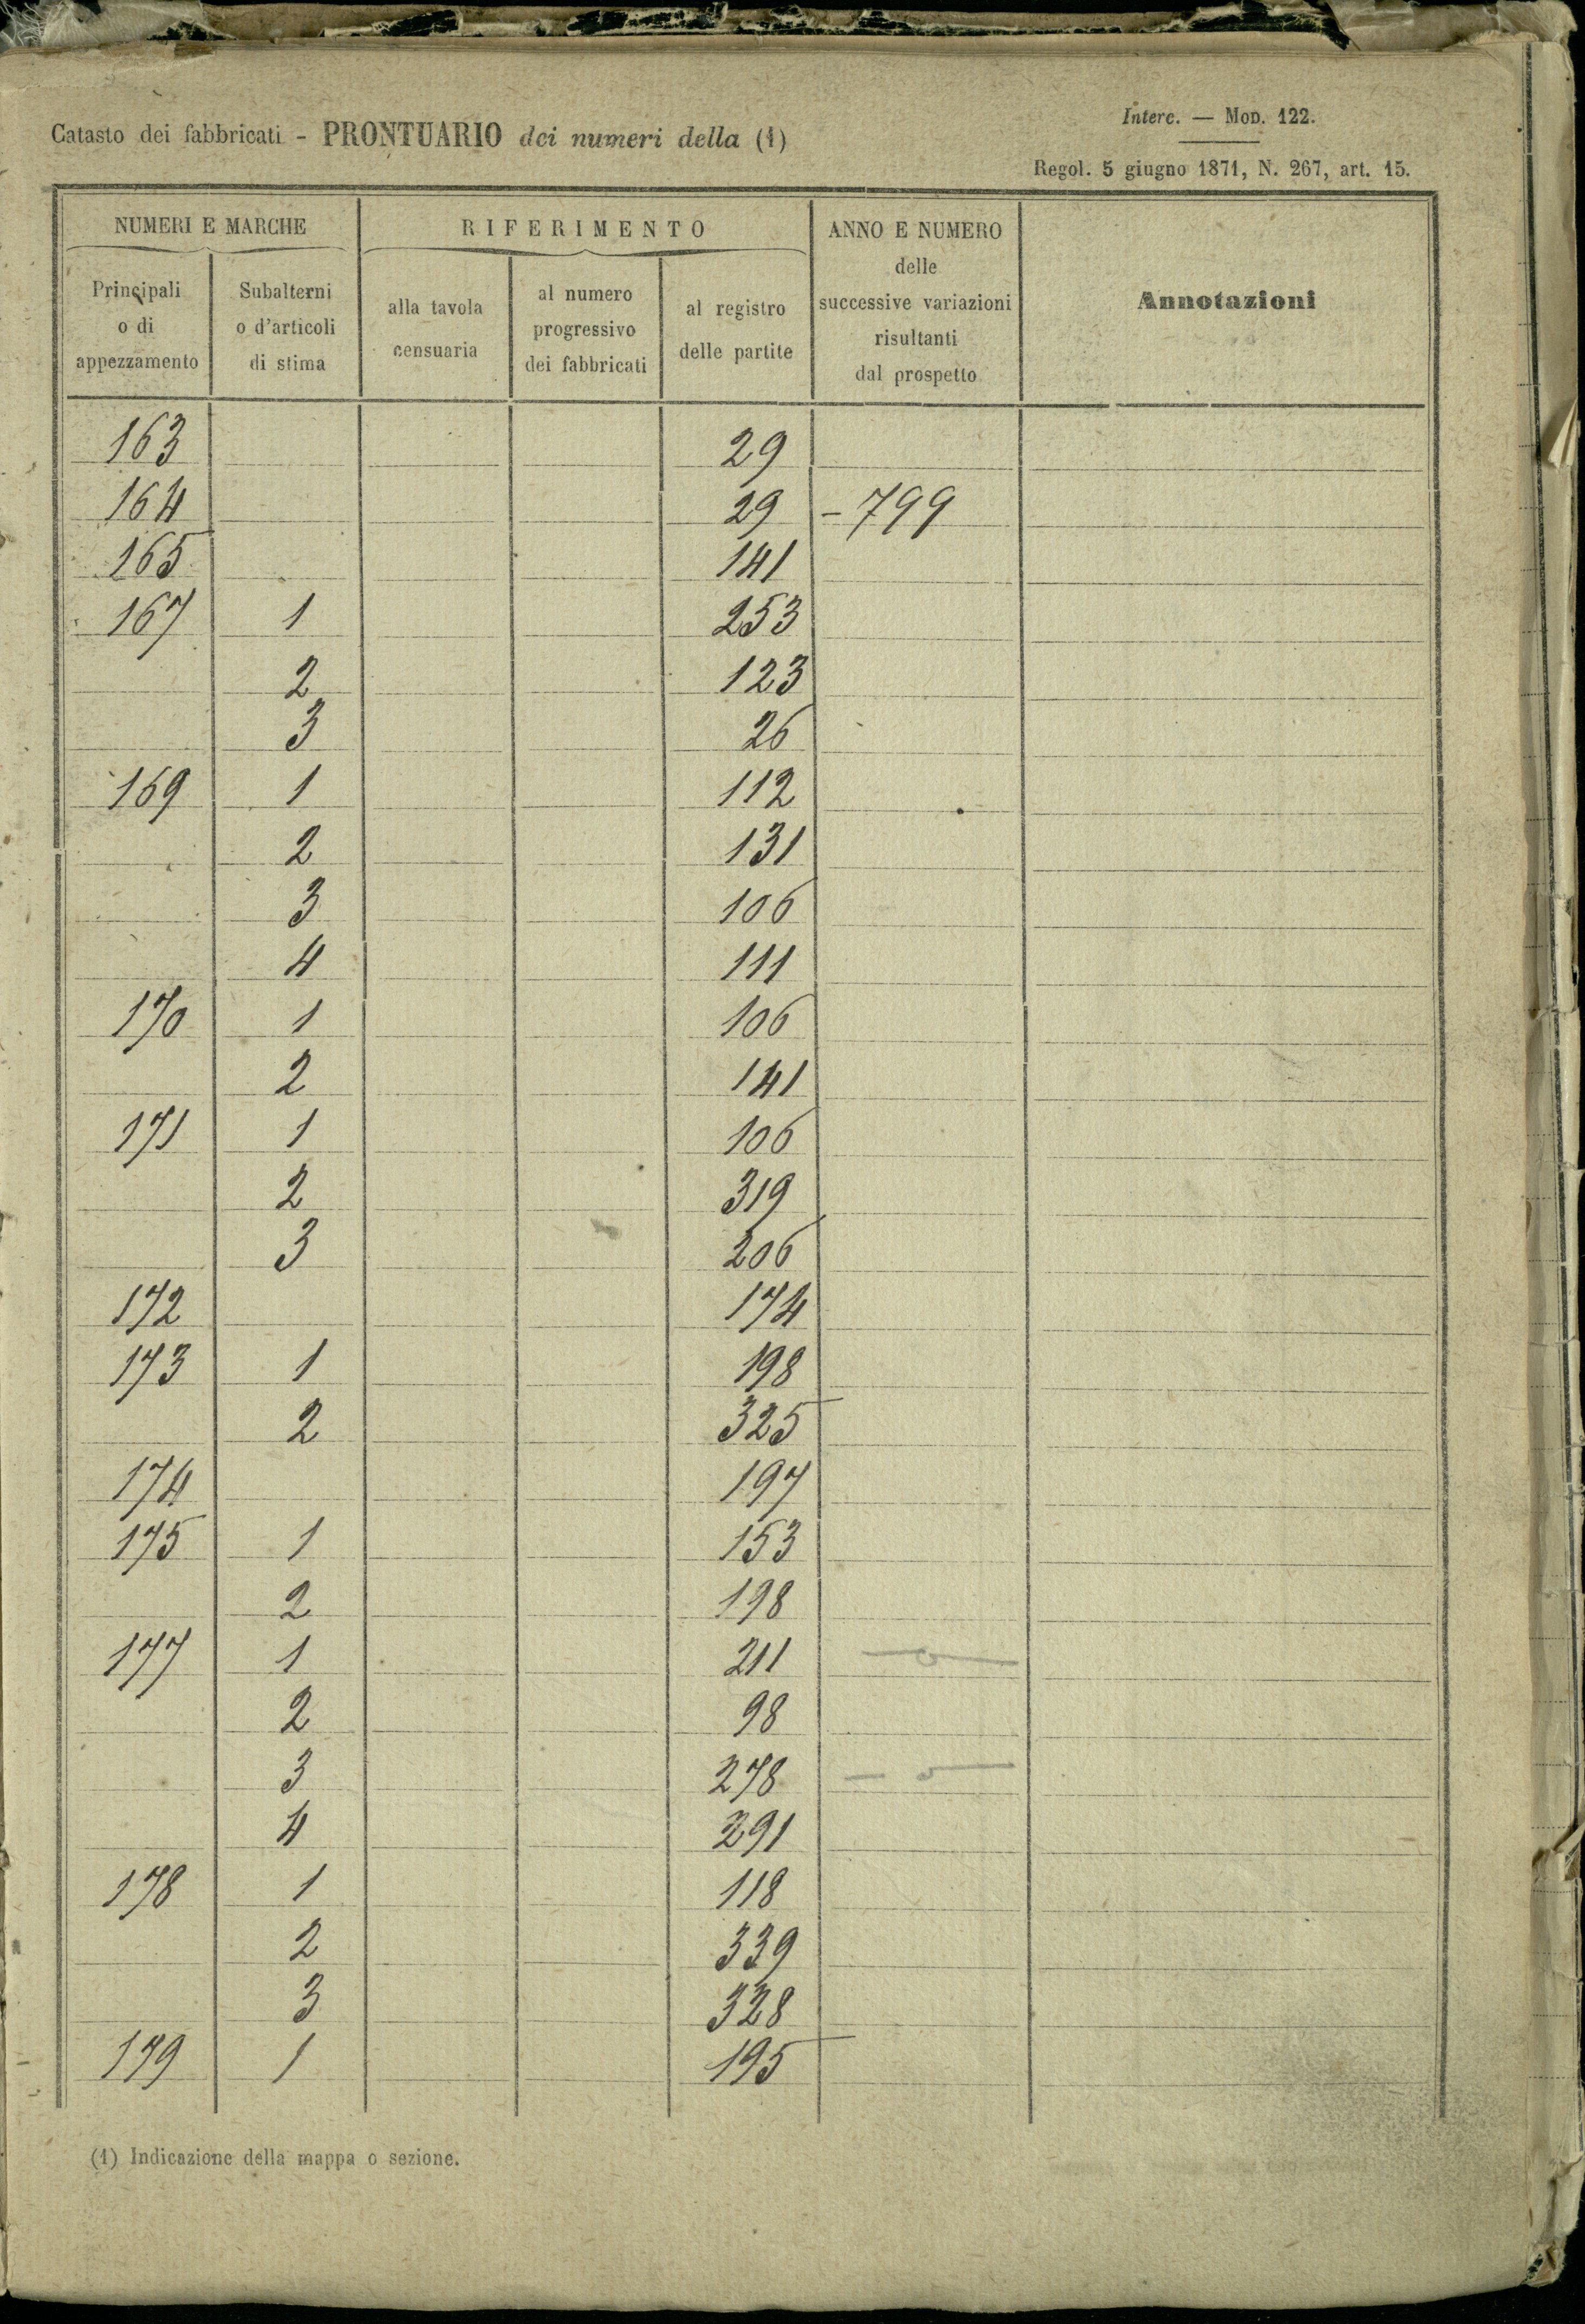 Catasto dei fabbricati - PRONTUARIO dei numeri della (1)
Interc. — Mod. 122.
Regol. 5 giugno 1871, N. 267, art. 15.
NUMERI E MARCHE RIFERIMENTO ANNO E NUMERO delle successive variazioni risultanti dal prospetto Annotazioni
Principali o di appezzamento Subalterni o d'articoli di stima alla tavola censuaria al numero progressivo dei fabbricati al registro delle partite
163 29
164 29 - 799
165 141
167 1 253
2 123
3 26
169 1 112
2 131
3 106
4 111
170 1 106
2 141
171 1 106
2 319
3 206
172 174
173 1 198
2 325
174 197
175 1 153
2 198
177 1 211
2 98
3 278
4 291
178 1 118
2 339
3 328
179 1 195
(1) Indicazione della mappa o sezione.